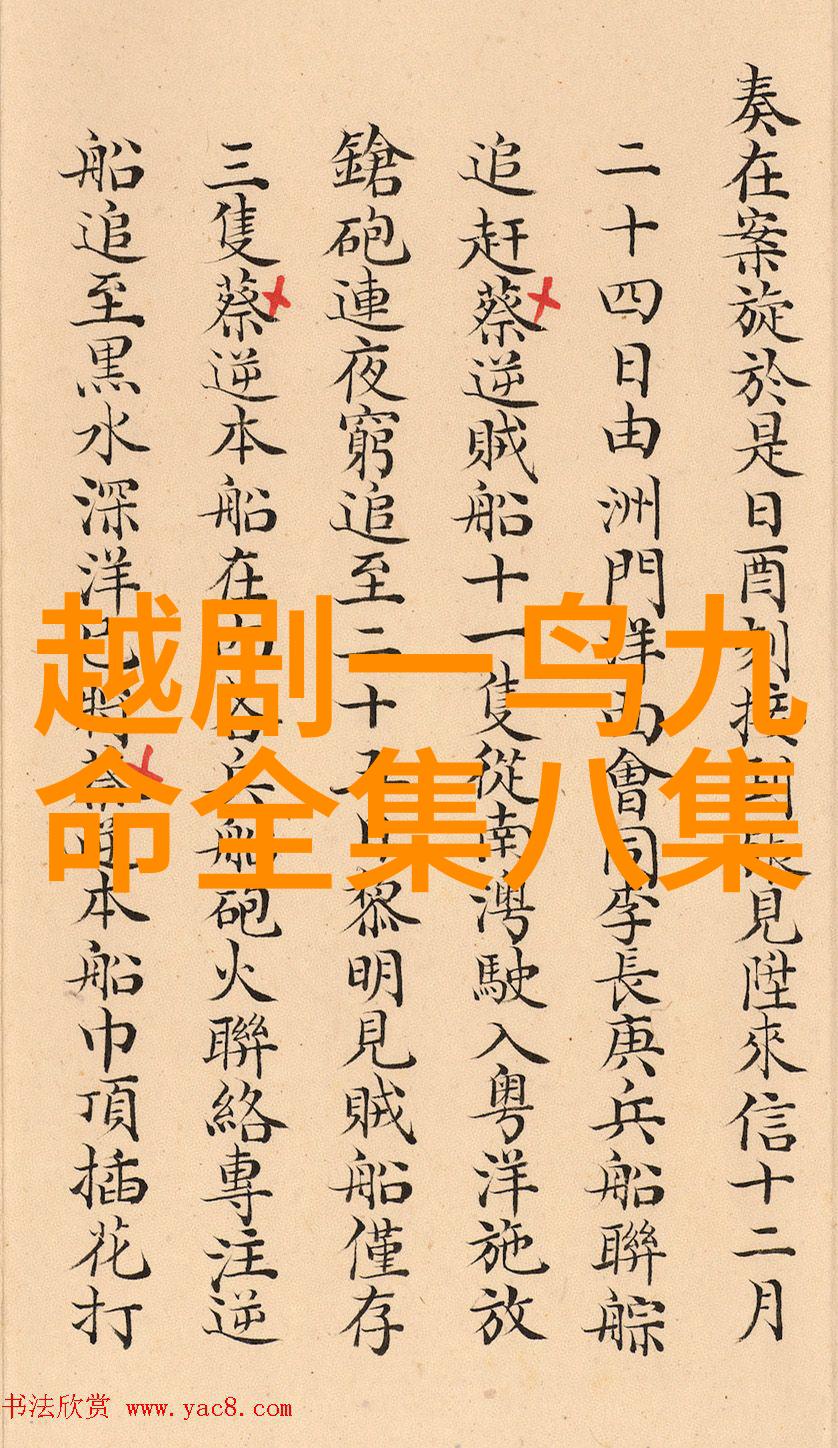 奏在案旋於是日酉刻接到張見陞來信十二月
二十四日由洲門洋面會同李長庚兵船聯䑸
追赶蔡逆賊船十一隻從南灣駛入粤洋施放
鎗砲連夜窮追至二十五日黎明見賊船僅存
三隻蔡逆本船在內各兵船砲火聯絡專注逆
船追至黒水深洋已將蔡逆本船巾頂插花打
越剧一鸟九
命全集八集
书法欣赏 www.yac8.com